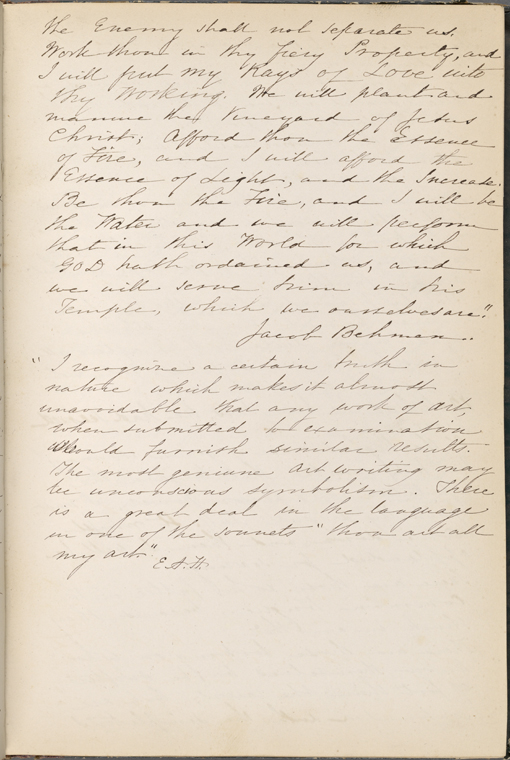 the Enemy shall not separate us.
Work thou in thy fiery Property, and
I will put my Rays of Love into
thy Working. We will plant and
manure the Vineyard of Jesus
Christ; Afford thou the Essence
of Fire, and I will afford the
Essence of Light, and the Increase.
Be thou the Fire, and I will be
the Water and we will perform
that in this World for which
GOD hath ordained us, and
we will serve him in his
Temple, which we ourselves are."
Jacob Behman.
"I recognize a certain truth in
nature which makes it almost
unavoidable that any work of art
when submitted to examination
should furnish similar results.
The most geniune art writing may
be unconscious symbolism. There
is a great deal in the language
in one of the sonnets "thou art all
my art."
E A. H.